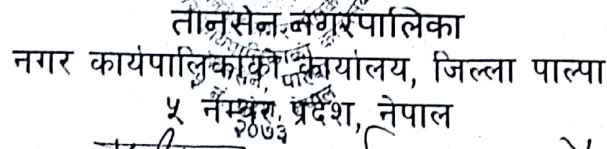 तानसेन नगरपालिका
नगर कार्यपालिकाको कार्यालय, जिल्ला पाल्पा
५ नम्बर प्रदेश, नेपाल
२०७३